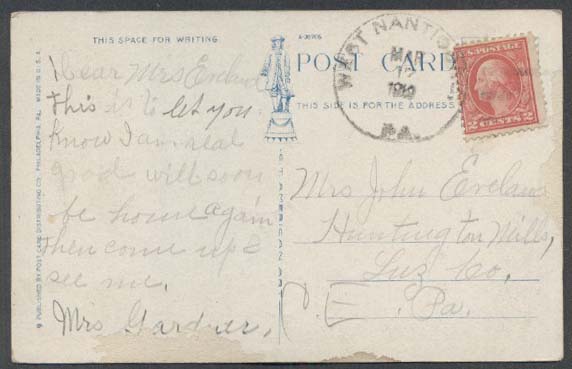 THIS SPACE FOR WRITING
A-30706
POST CARD
THIS SIDE IS FOR THE ADDRESS
WEST NANTICO
MAR
12
1919
PA.
U.S. POSTAGE
2 CENTS 2
Dear Mrs Eveland
This is to let you
know I am real
good will soon
be home again
then come up &
see me.
Mrs Gardner.
Mrs John Eveland
Huntington Mills,
Luz Co,
Pa.
PUBLISHED BY POST CARD DISTRIBUTING CO., PHILADELPHIA, PA. MADE IN U.S.A.